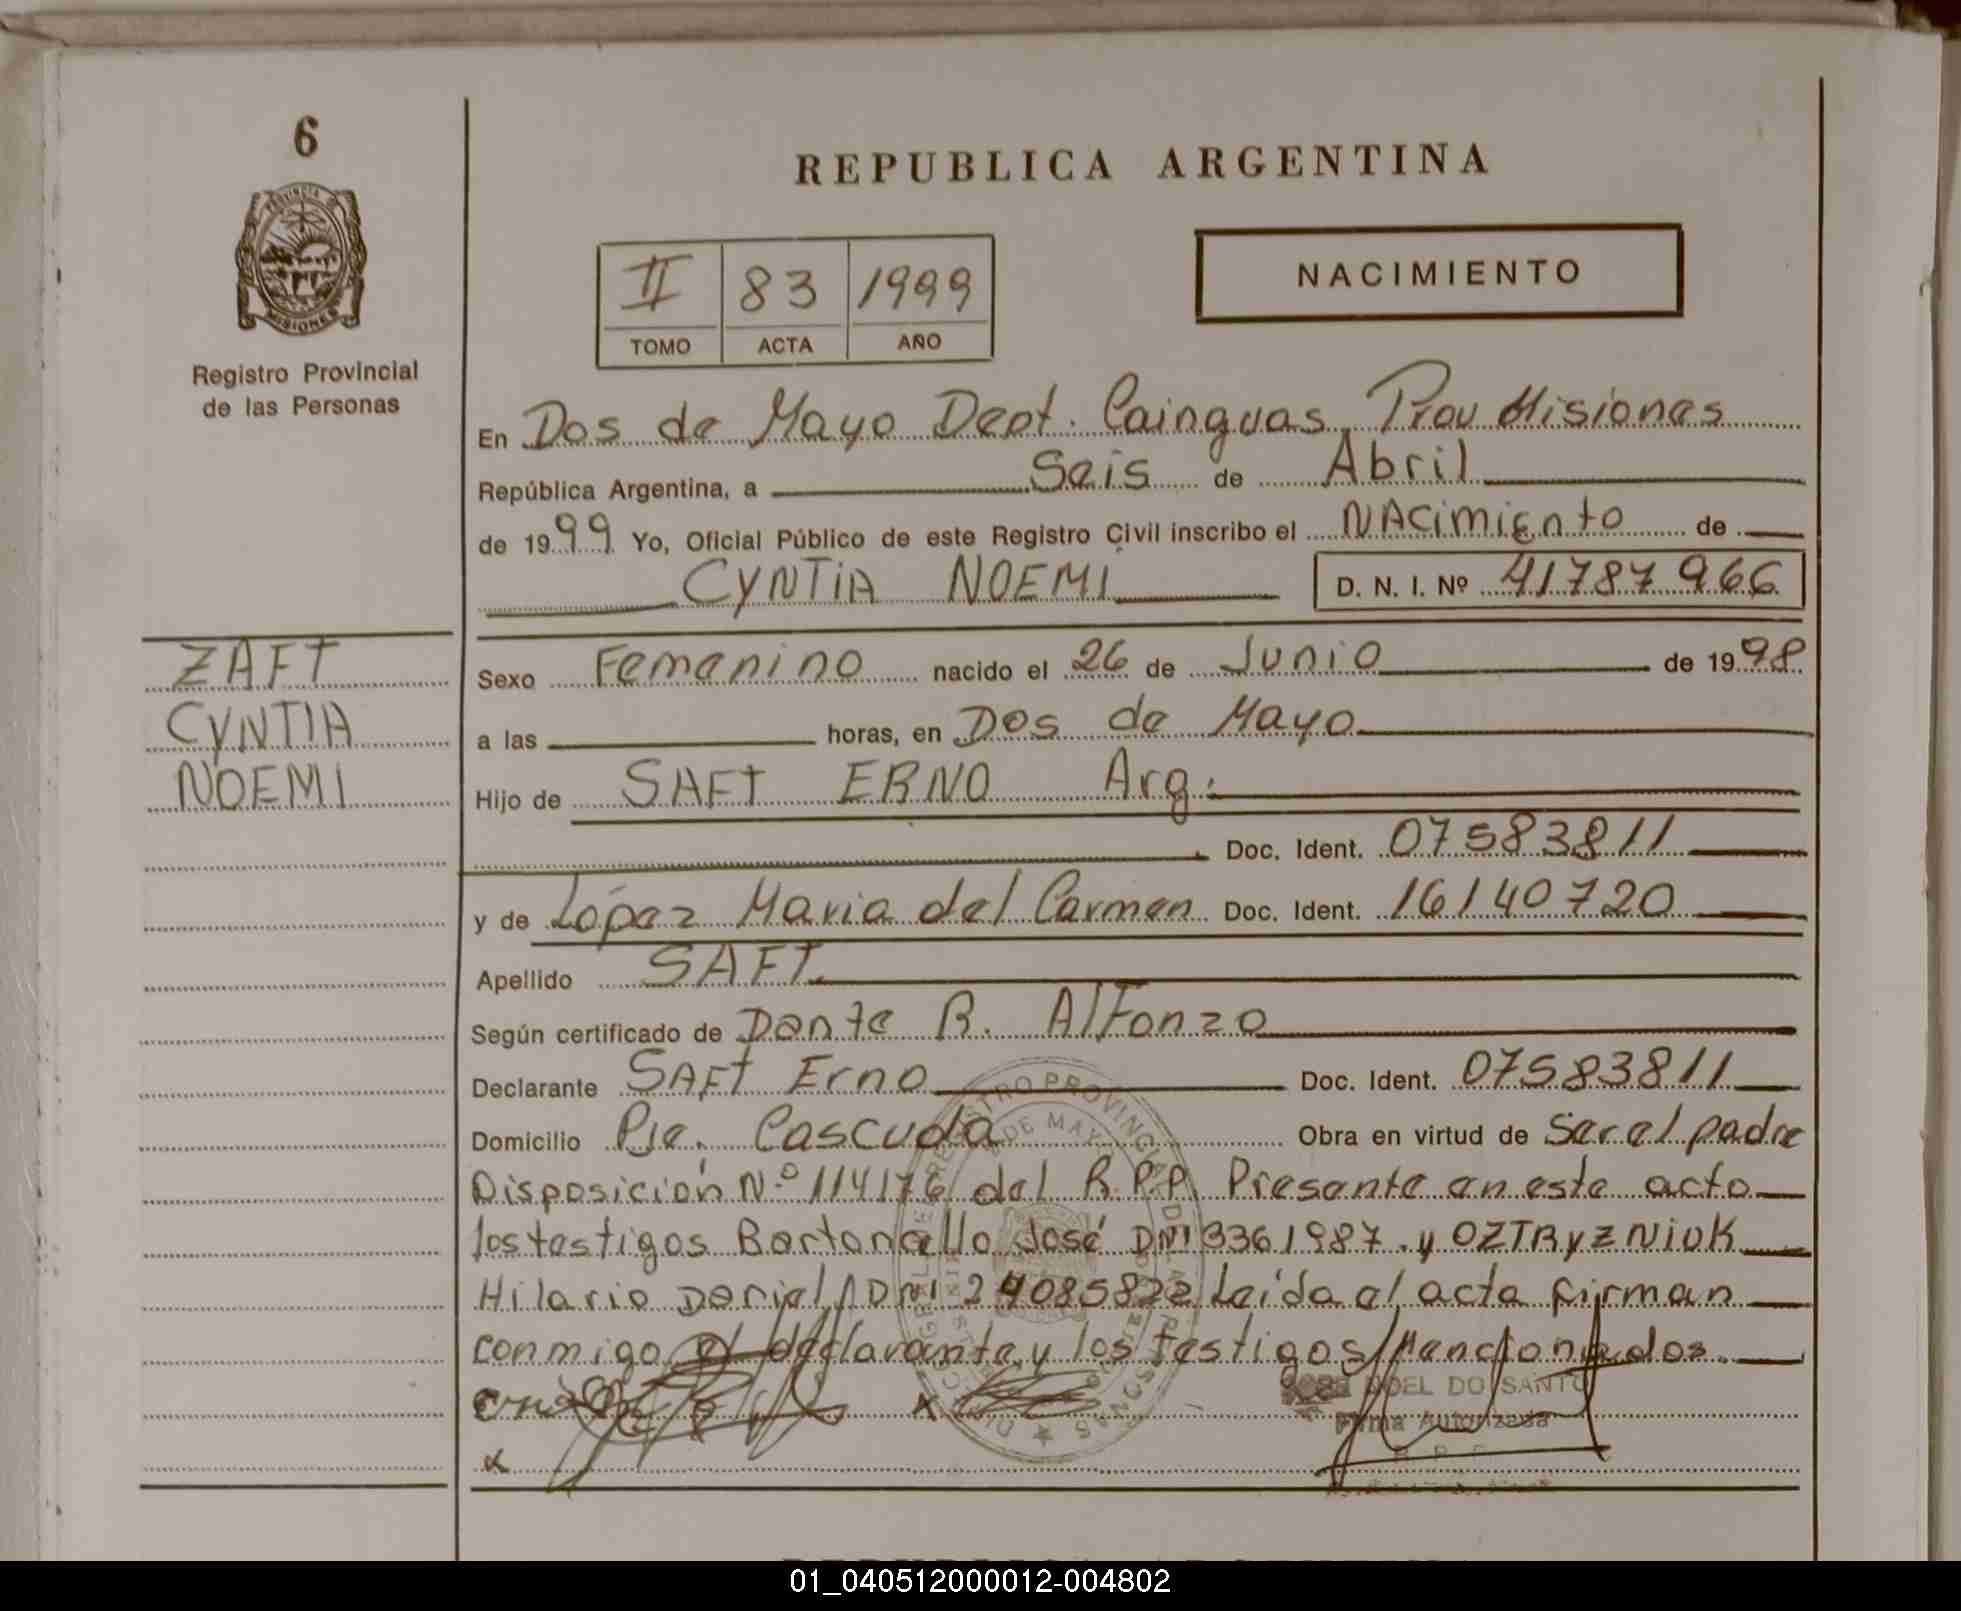 6
REPUBLICA ARGENTINA
PROVINCIA DE
MISIONES
Registro Provincial
de las Personas
II 83 1999
TOMO ACTA AÑO
NACIMIENTO
En Dos de Mayo Dept. Cainguas Prov Misiones
República Argentina, a Seis de Abril
de 1999 Yo, Oficial Público de este Registro Civil inscribo el NAcimiento de
CYNTiA NOEMI D. N. I. Nº 41787966
ZAFT
CYNTIA
NOEMI
Sexo Femenino nacido el 26 de Junio de 1998
a las horas, en Dos de Mayo
Hijo de SAFT ERNO Arg.
Doc. Ident. 07583811
y de López Maria del Carmen Doc. Ident. 16140720
Apellido SAFT
Según certificado de Dante R. AlFonzo
Declarante SAFT Erno Doc. Ident. 07583811
Domicilio Pje. Cascuda Obra en virtud de Ser el padre
Disposición N.º 114176 del R.P.P. Presente en este acto
los testigos Bortoncello José DNI 3361987 y OZTRyZNiUK
Hilario Doniel DNI 24085822 Leída el acta firman
conmigo el declarante y los testigos Mencionados.
NOEL DO SANTO
Firma Autorizada
01_040512000012-004802